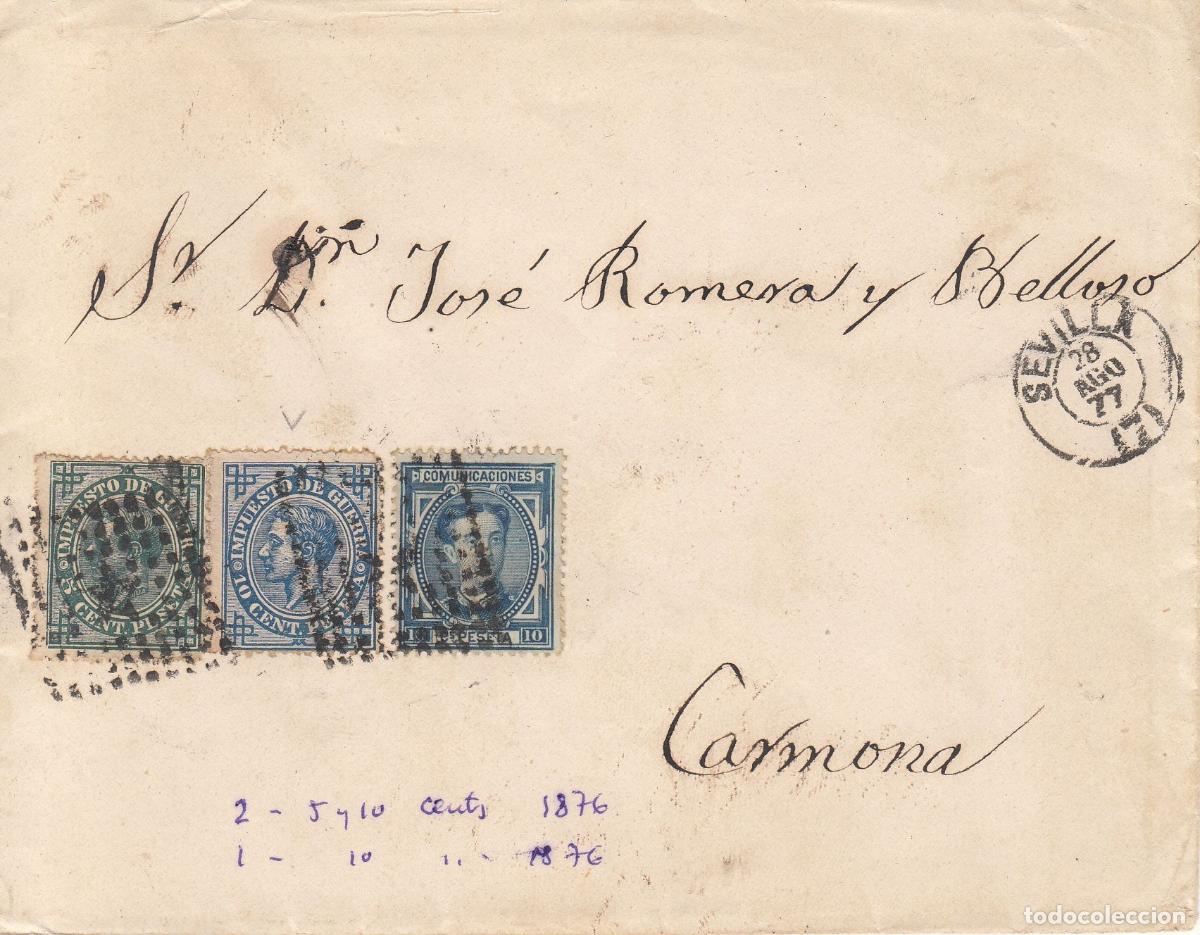 Sr. Dn. José Romera y Belloso
SEVILLA
28
AGO
77
IMPUESTO DE GUERRA
5 CENT. PESETA
IMPUESTO DE GUERRA
10 CENT. PESETA
COMUNICACIONES
10 CS PESETA 10
Carmona
2 - 5 y 10 cents 1876
1 - 10 " - 1876
todocoleccion